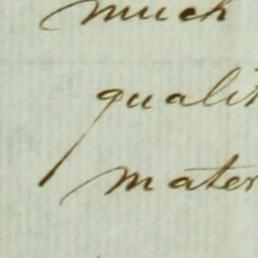 much
qualit
mater